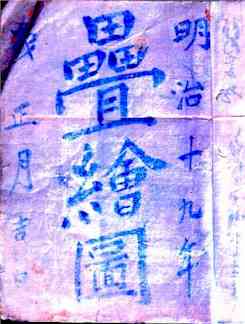 明治十九年
疊繪圖
戌正月吉日